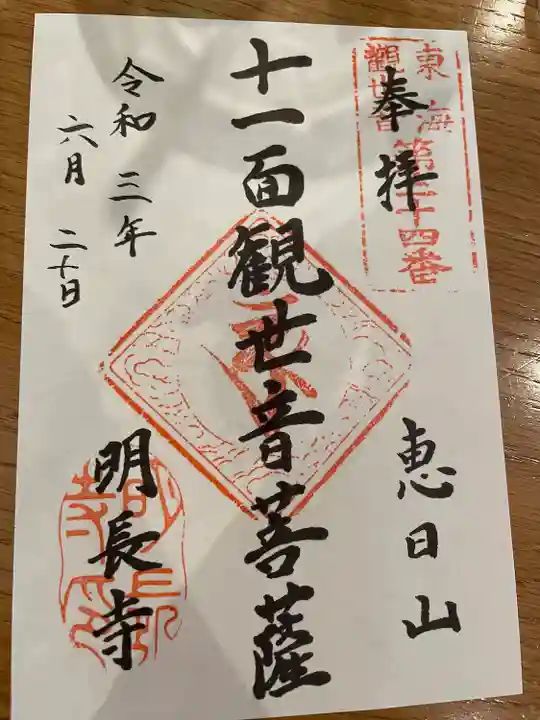 奉拝
東海
觀世音
第三十四番
恵日山
十一面観世音菩薩
明長寺
令和三年
六月二十日